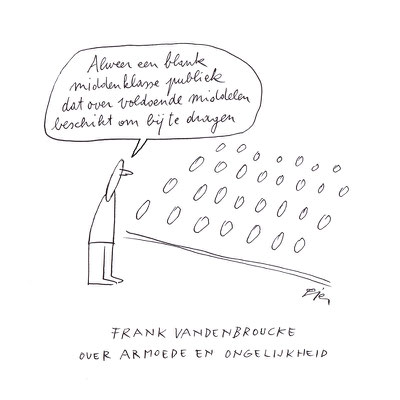 Alweer een blank
middenklasse publiek
dat over voldoende middelen
beschikt om bij te dragen
FRANK VANDENBROUCKE
OVER ARMOEDE EN ONGELIJKHEID